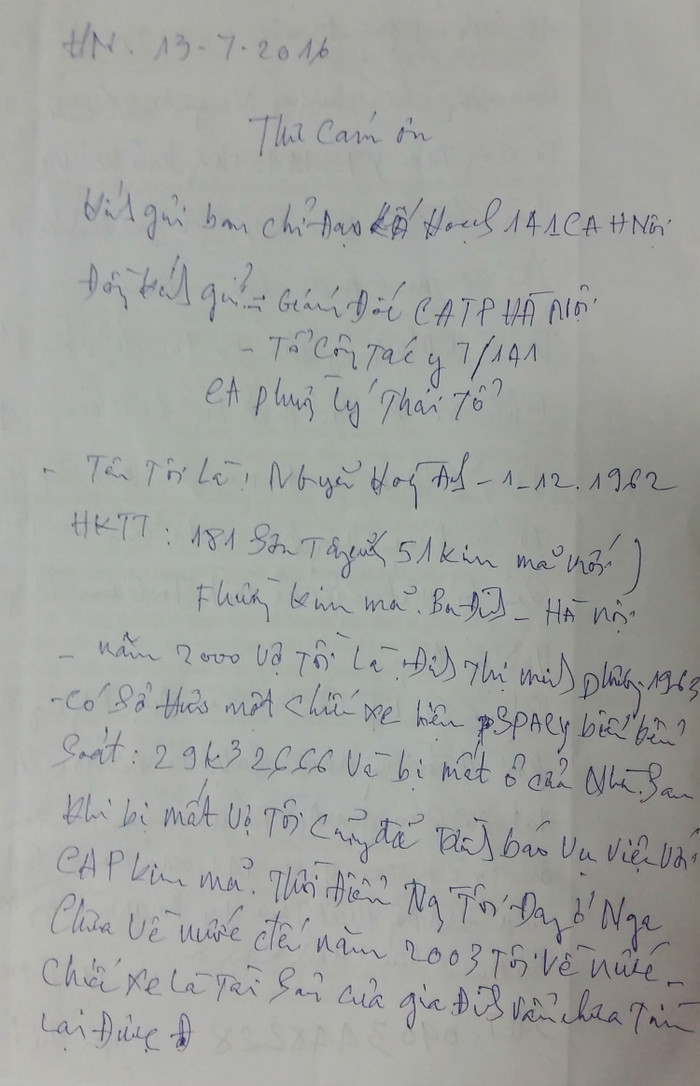 HN. 13-7-2016
Thư Cảm ơn
Kính gửi ban chỉ Đạo Kế Hoạch 141 CA HNội
Đồng kính gửi: Giám Đốc CATP HÀ NỘI
- Tổ Công Tác y 7/141
CA phường Lý Thái Tổ
- Tên Tôi Là: Nguyễn Hoàng - 1-12.1962
HKTT: 181 Sơn Tây 51 Kim mã
Phường Kim mã. Ba Đình - Hà nội
- năm 2000 Vợ Tôi Là Đinh Thị minh 1963
- Có Sở Hữu một chiếc xe hiệu SPACY biển kiểm
Soát: 29K3 2666 Và bị mất ở cửa Nhà. Sau
Khi bị mất Vợ Tôi Cũng đã báo Vụ Việc Với
CAP Kim mã. Thời Điểm Tôi Đang ở Nga
Chưa Về nước đến năm 2003 Tôi Về nước
Chiếc Xe Là Tài Sản của gia Đình Vẫn chưa Tìm
Lại Được